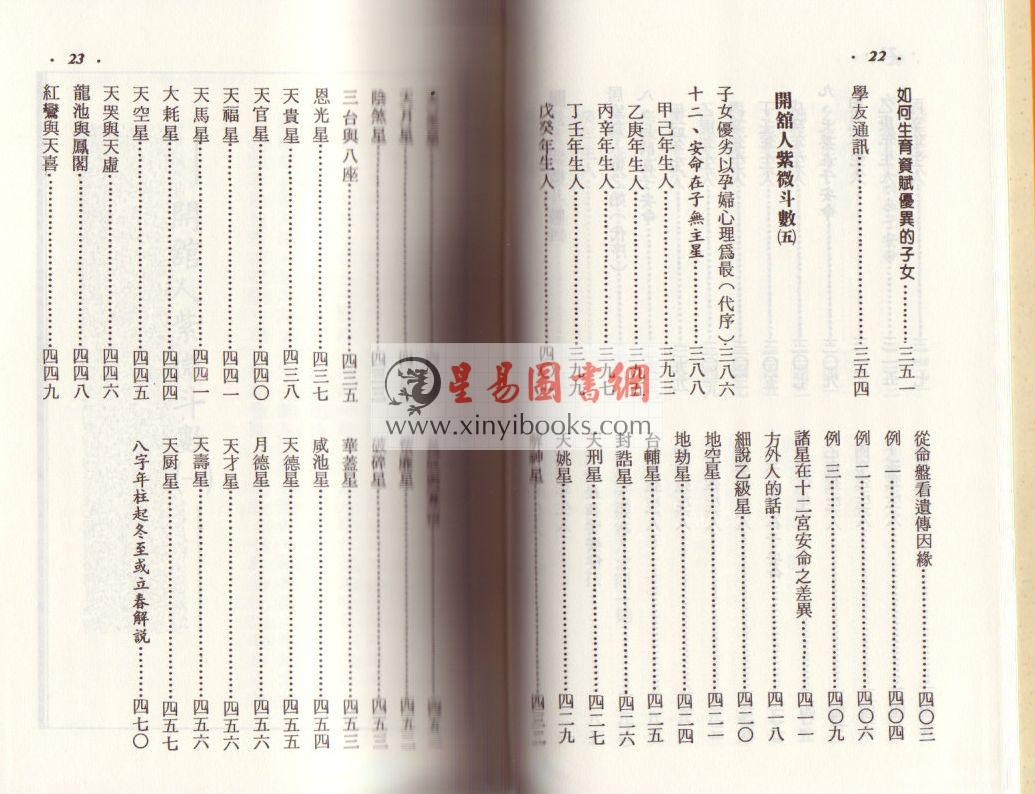 22
如何生育資賦優異的子女……三五一
學友通訊……三五四
開舘人紫微斗數㈤
子女優劣以孕婦心理爲最（代序）…三八六
十二、安命在子無主星……三八八
甲己年生人……三九三
乙庚年生人……三九五
丙辛年生人……三九七
丁壬年生人……三九九
戊癸年生人……
從命盤看遺傳因緣……四〇三
例一……四〇四
例二……四〇六
例三……四〇九
諸星在十二宮安命之差異……四一一
方外人的話……四一八
細說乙級星……四二〇
地空星……四二一
地劫星……四二四
台輔星……四二五
封誥星……四二六
天刑星……四二七
天姚星……四二九
解神星……
23
天月星……
陰煞星……
三台與八座……四三五
恩光星……四三七
天貴星……四三八
天官星……四四〇
天福星……四四一
天馬星……四四一
大耗星……四四四
天空星……四四五
天哭與天虛……四四六
龍池與鳳閣……四四八
紅鸞與天喜……四四九
破碎星……四五三
華蓋星……四五三
咸池星……四五四
天德星……四五五
月德星……四五六
天才星……四五六
天壽星……四五六
天厨星……四五七
八字年柱起冬至或立春解說……四七〇
星易圖書網
www.xinyibooks.com